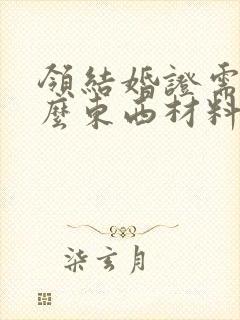 領結婚證需
麼東西材料
柒玄月